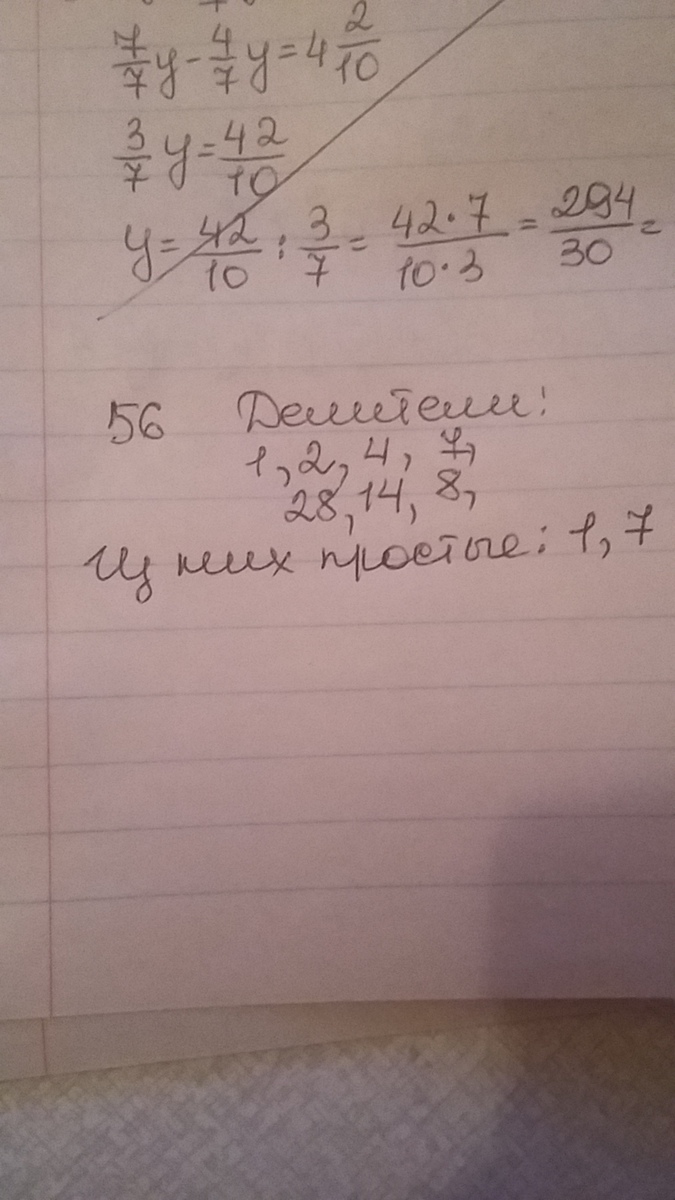 7/7 y - 4/7 y = 4 2/10
3/7 y = 42/10
y = 42/10 : 3/7 = 42·7/10·3 = 294/30 =
56 Делители:
1, 2, 4, 7,
28, 14, 8,
Из них простые: 1, 7